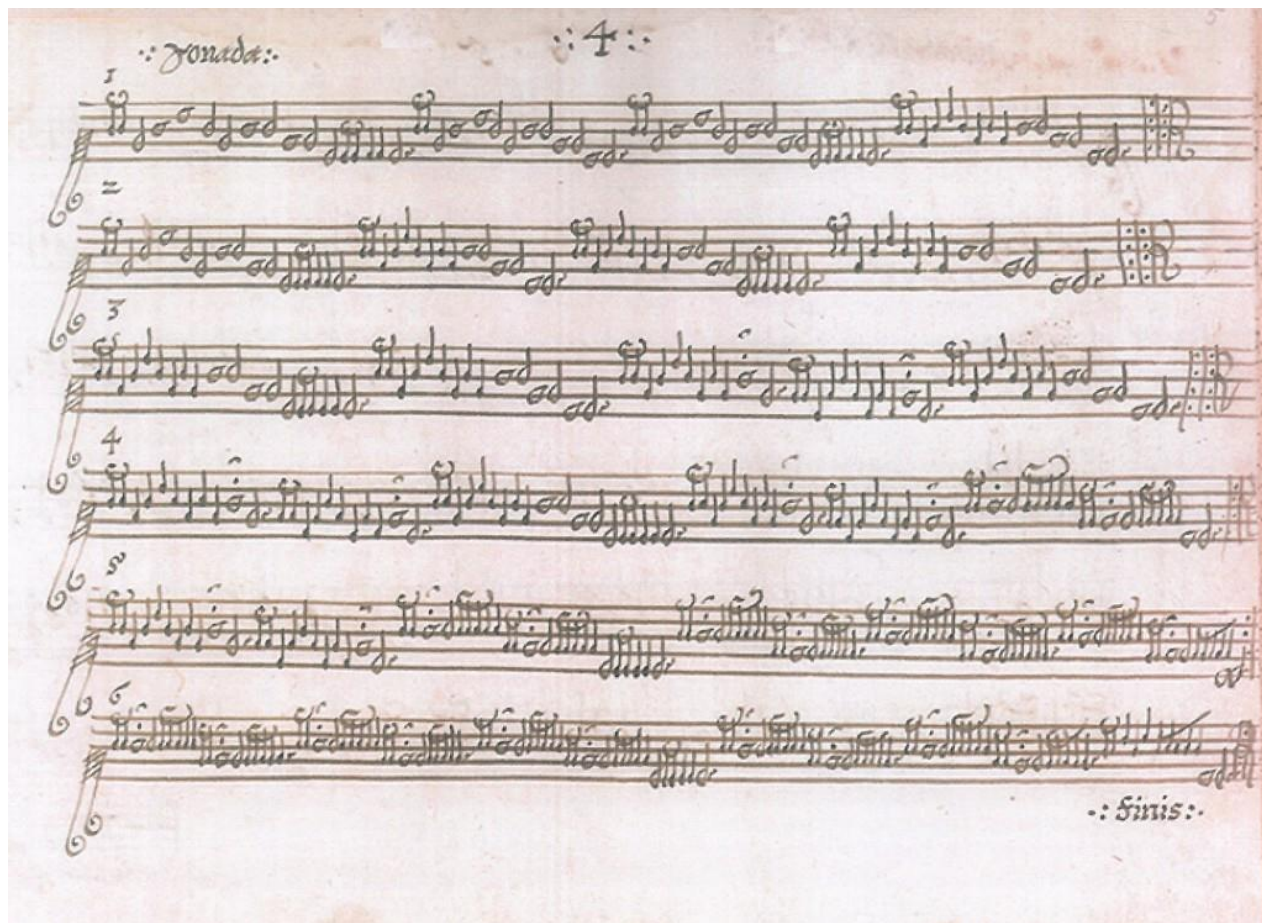 .: Sonada :.
.:: 4 ::.
1
2
3
4
5
6
.: Finis :.